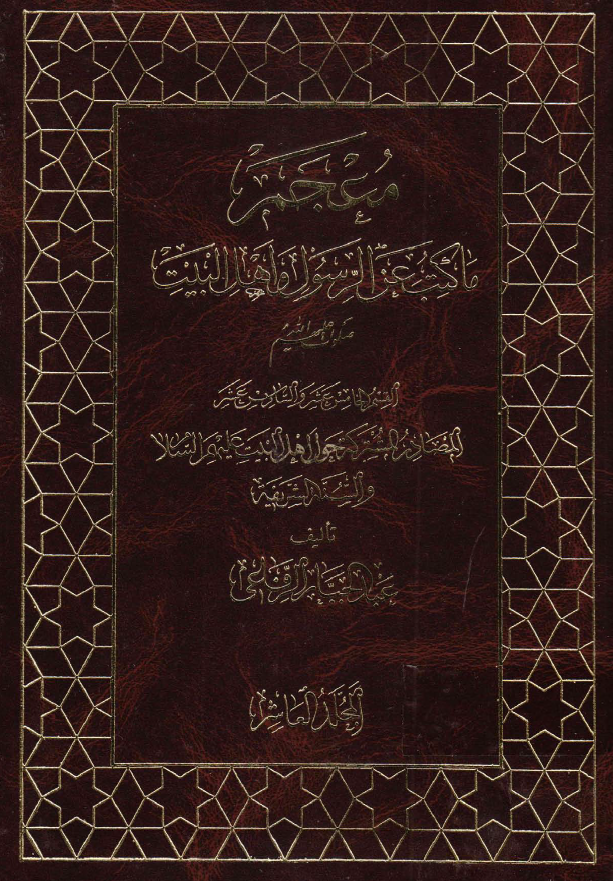 مُعْجَمُ
مَا كُتِبَ عَنِ الرَّسُولِ وَأَهْلِ الْبَيْتِ
صلوات الله عليهم
القسم الخامس عشر والسادس عشر
المصادر المشتركة حول أهل البيت عليهم السلام
والسنة الشريفة
تأليف
عبد الجبار الرفاعي
المجلد العاشر